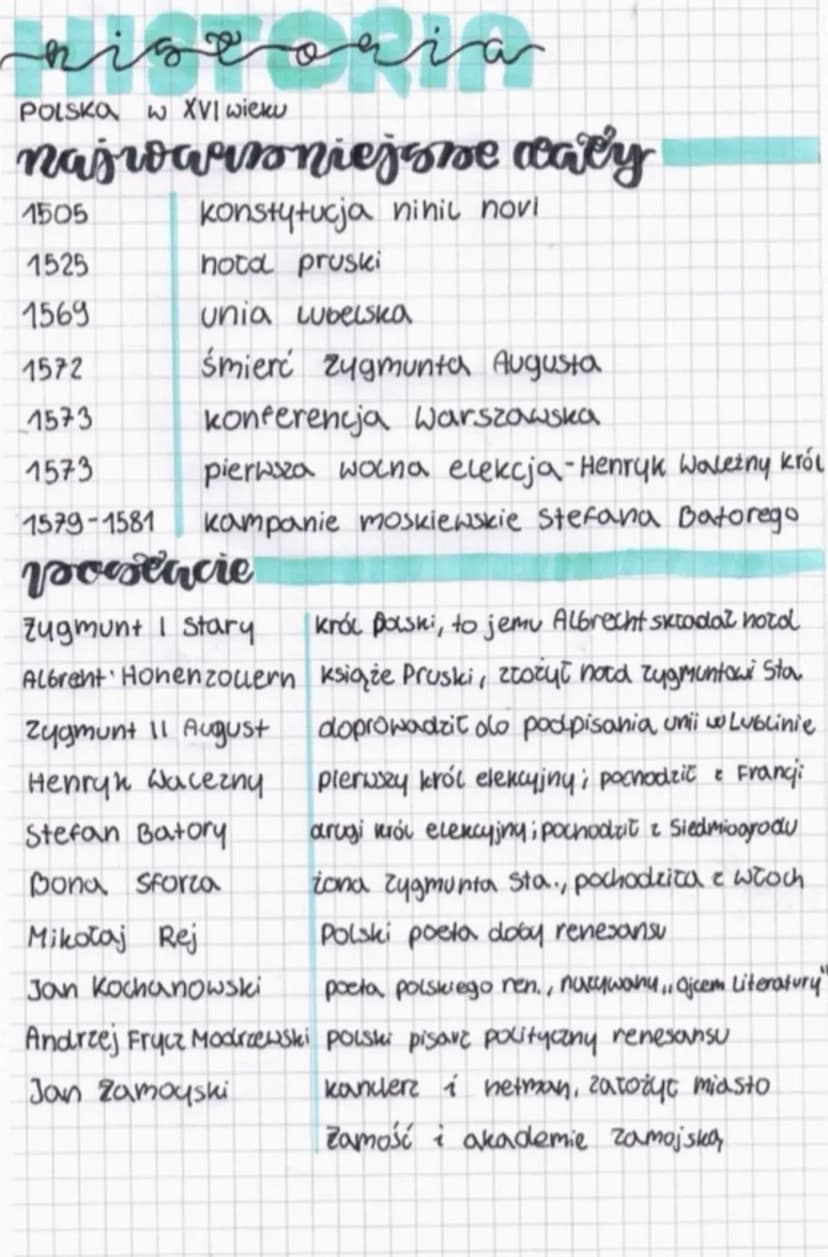 HISTORIA
historia
POLSKA w XVI wieku
najważniejsze daty
1505 konstytucja nihil novi
1525 hołd pruski
1569 unia lubelska
1572 śmierć Zygmunta Augusta
1573 konferencja Warszawska
1573 pierwsza wolna elekcja - Henryk Walezny król
1579-1581 kampanie moskiewskie Stefana Batorego
postacie
Zygmunt I Stary król Polski, to jemu Albrecht składał hołd
Albreht Hohenzollern książe Pruski, złożył hołd Zygmuntowi Sta.
Zygmunt II August doprowadził do podpisania unii w Lublinie
Henryk Walezny pierwszy król elekcyjny; pochodził z Francji
Stefan Batory drugi król elekcyjny; pochodził z Siedmiogrodu
Bona Sforza żona Zygmunta Sta., pochodziła z Włoch
Mikołaj Rej Polski poeta doby renesansu
Jan Kochanowski poeta polskiego ren., nazywany „Ojcem Literatury"
Andrzej Frycz Modrzewski polski pisarz polityczny renesansu
Jan Zamoyski kanclerz i hetman, założył miasto
Zamość i akademie zamojską